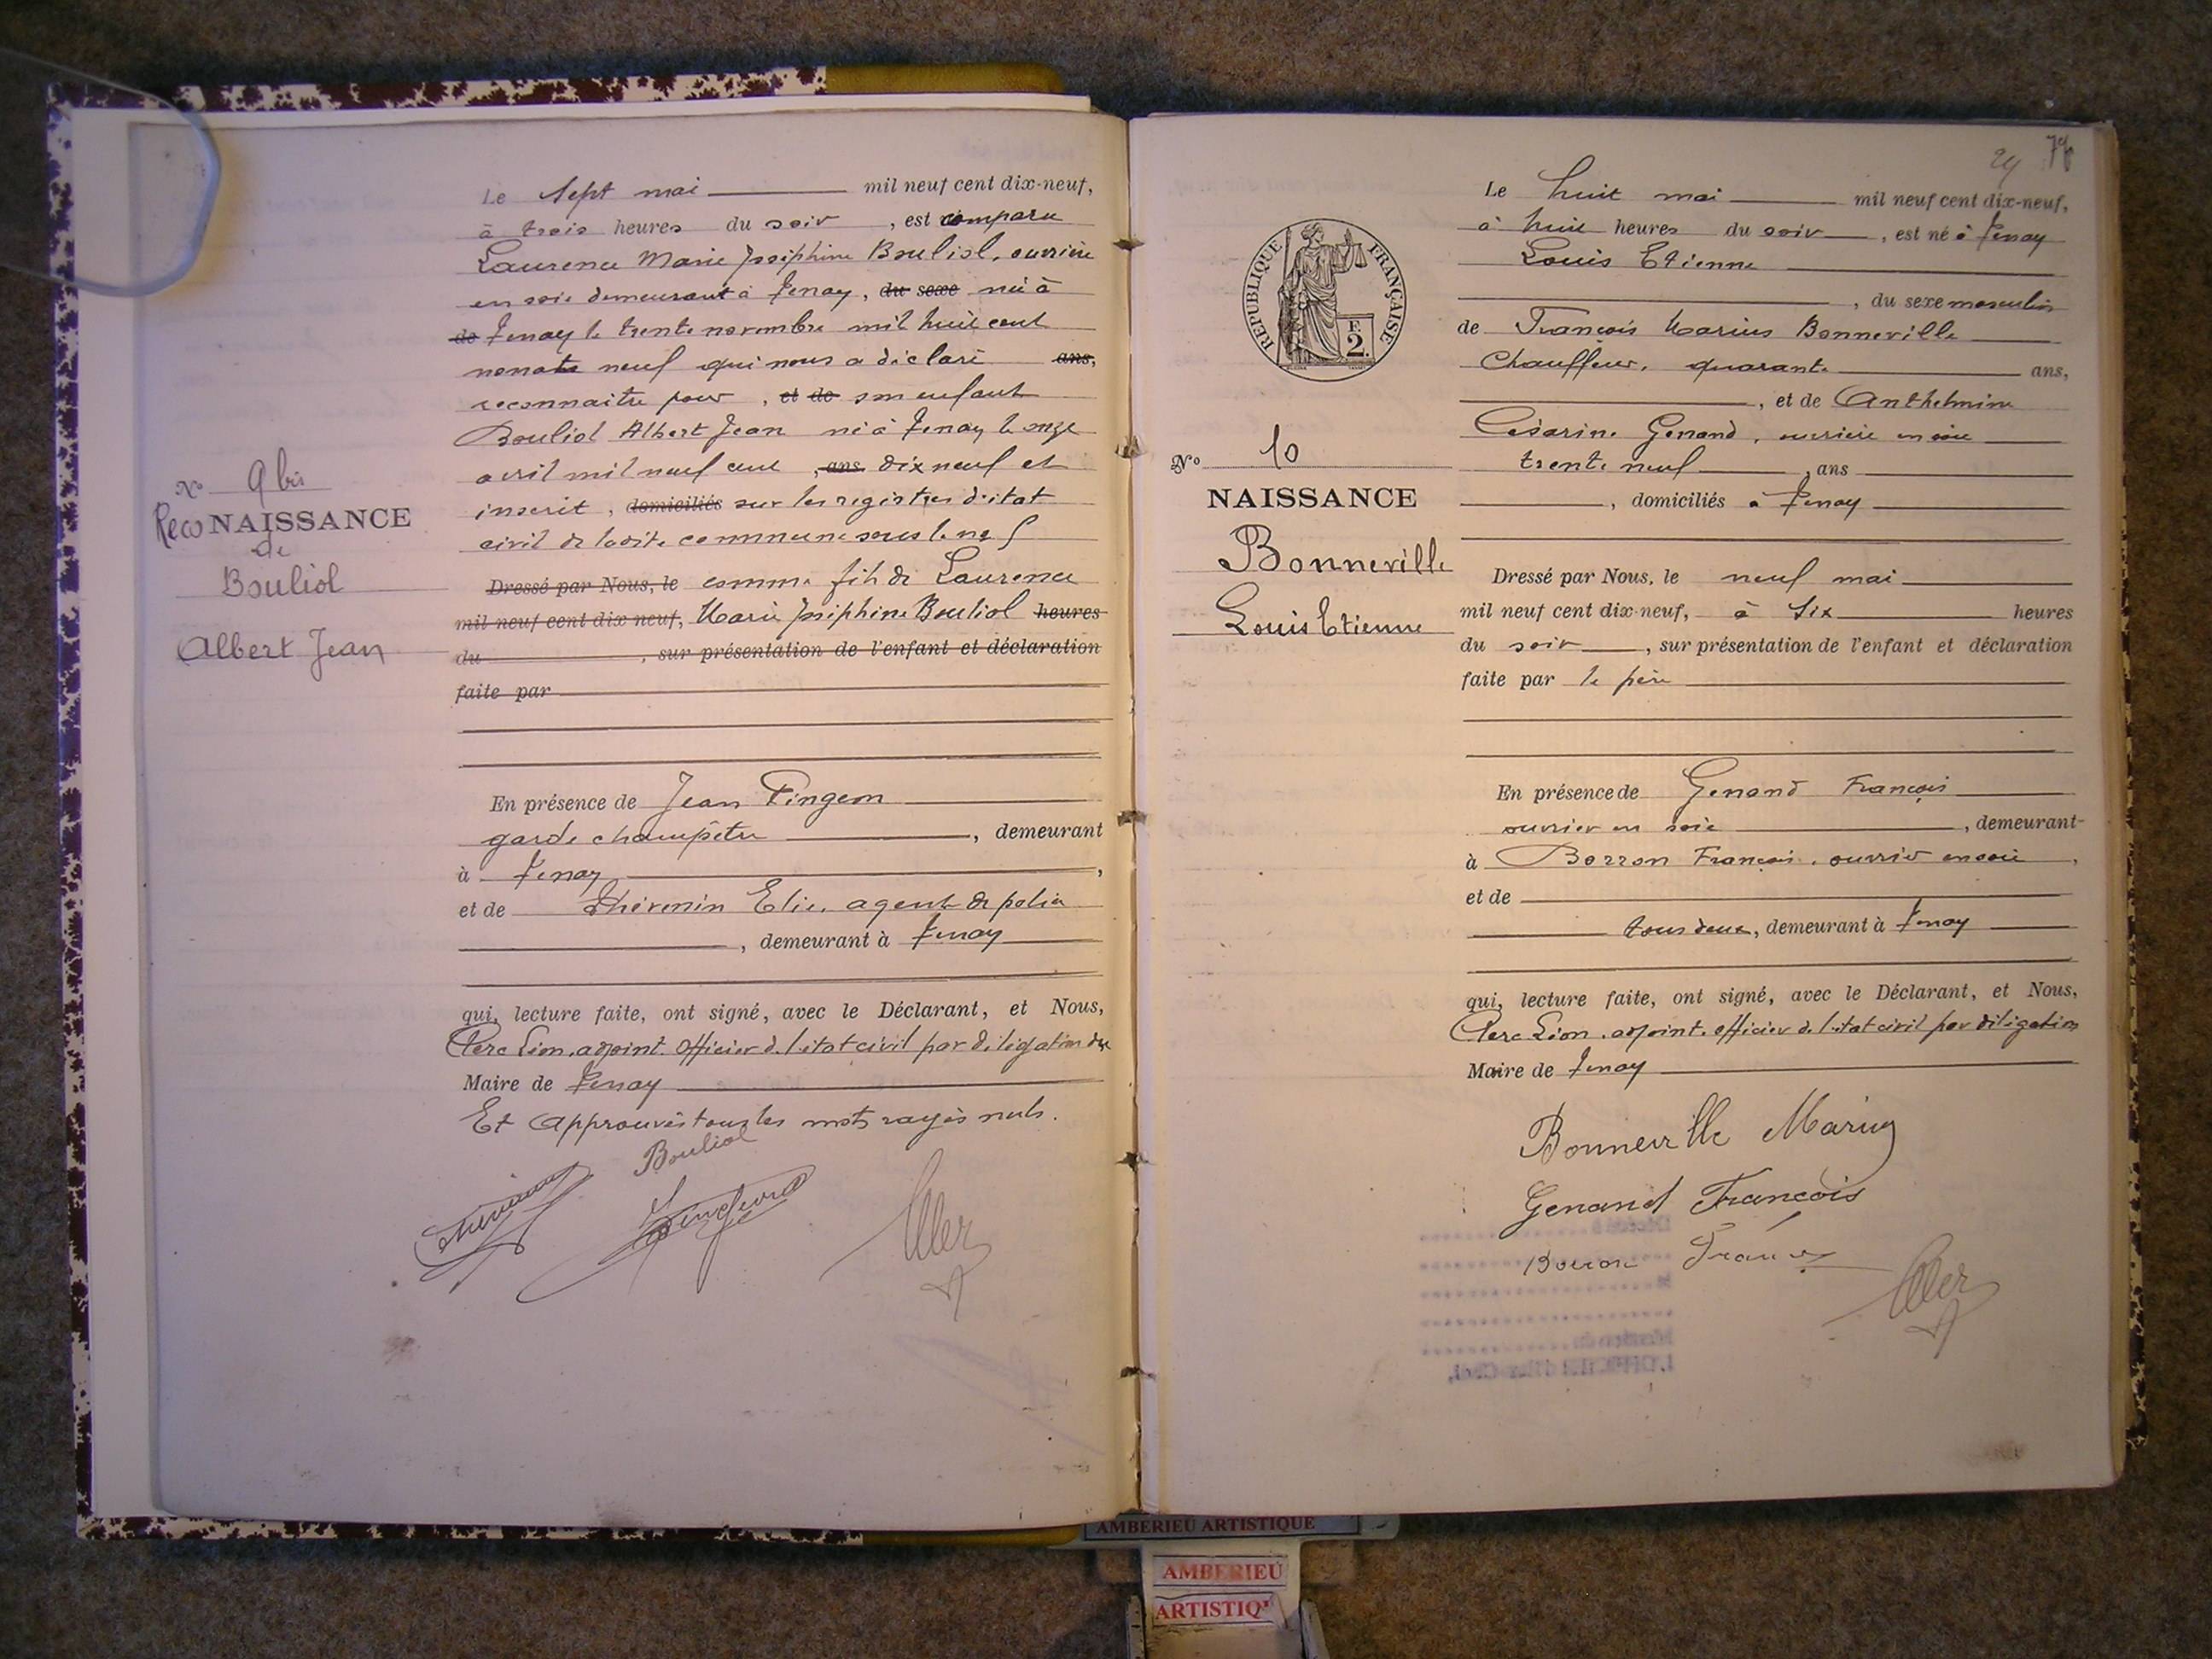 Le Sept mai mil neuf cent dix-neuf,
à trois heures du soir, est comparu
Laurence Marie Joséphine Bouliol, ouvrière
en soie demeurant à Tenay, du sexe née à
de Tenay le trente novembre mil huit cent
nonante neuf qui nous a déclaré ans,
reconnaitre pour, et de son enfant
Bouliol Albert Jean né à Tenay le onze
avril mil neuf cent, ans dix neuf et
inscrit, domiciliés sur les registres d'état
civil de la dite commune sous le no
No 9 bis
RecoNAISSANCE
de
Bouliol
Albert Jean
Dressé par Nous, le comme fils de Laurence
mil neuf cent dix-neuf, Marie Joséphine Bouliol heures
du, sur présentation de l'enfant et déclaration
faite par
En présence de Jean Pingeon
garde champêtre, demeurant
à Tenay,
et de Thévenin Elie, agent de police
, demeurant à Tenay
qui, lecture faite, ont signé, avec le Déclarant, et Nous,
Clerc Léon, adjoint, officier de l'état civil par délégation du
Maire de Tenay
Et approuvés tous les mots rayés nuls.
Bouliol
29
Le huit mai mil neuf cent dix-neuf,
à huit heures du soir, est né à Tenay
Louis Etienne
, du sexe masculin
de François Marius Bonneville
Chauffeur, quarante ans,
, et de Anthelmine
Césarine Genand, ouvrière en soie
trente neuf, ans
, domiciliés à Tenay
REPUBLIQUE FRANÇAISE
E
2.
No 10
NAISSANCE
Bonneville
Louis Etienne
Dressé par Nous, le neuf mai
mil neuf cent dix-neuf, à Six heures
du soir, sur présentation de l'enfant et déclaration
faite par le père
En présence de Genand François
ouvrier en soie, demeurant
à Borron François, ouvrier en soie,
et de
tous deux, demeurant à Tenay
qui, lecture faite, ont signé, avec le Déclarant, et Nous,
Clerc Léon, adjoint, officier de l'état civil par délégation
Maire de Tenay
Bonneville Marius
Genand François
AMBERIEU ARTISTIQUE
AMBERIEU
ARTISTIQ